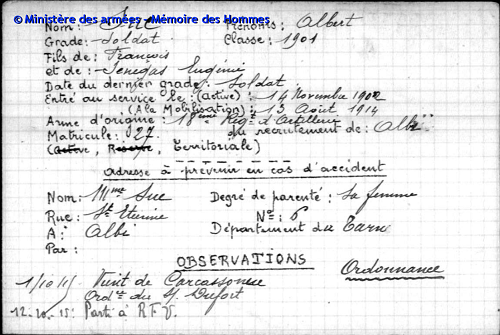 © Ministère des armées - Mémoire des Hommes
Nom: Suc Prénoms: Albert
Grade: Soldat Classe: 1901
Fils de: François
et de: Senegas Eugénie
Date du dernier grade: Soldat
Entré au service le: (active): 14 Novembre 1902
(A la Mobilisation): 3 Août 1914
Arme d'origine: 18ème Régt d'Artillerie
Matricule: 127 du recrutement de: Albi
(Active, Réserve, Territoriale)
Adresse à prévenir en cas d'accident
Nom: Mme Suc Degré de parenté: sa femme
Rue: St Etienne No: 6
A: Albi Département du Tarn
Par:
OBSERVATIONS
Ordonnance
1/10/15 Vient de Carcassonne
Ordce du Dufort
12-10-15: Parti à R.F.V.